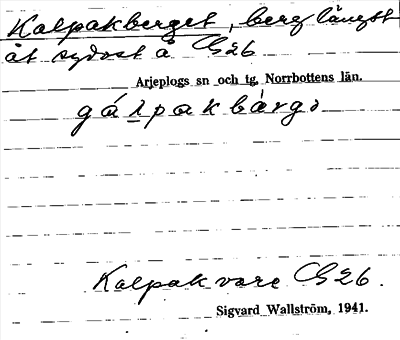 Kalpakberget, berg längst
åt sydost å G26
Arjeplogs sn och tg, Norrbottens län.
gálpakbärgo
Kalpakvare G26.
Sigvard Wallström, 1941.